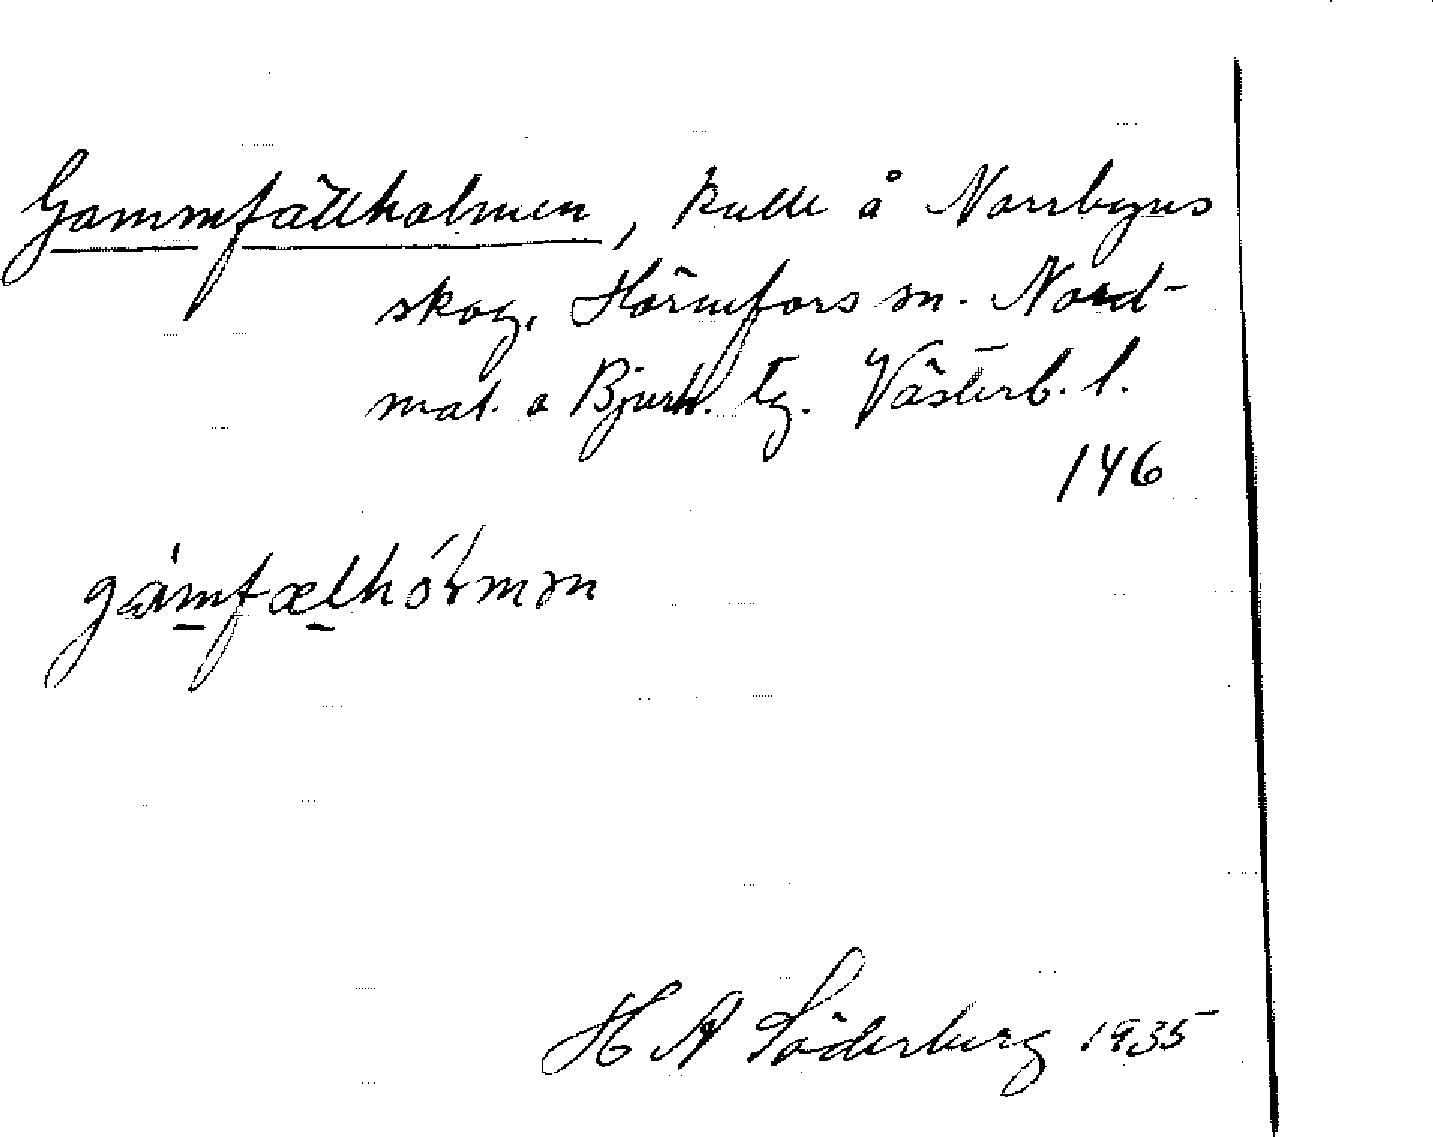 Gammfällholmen, kulle å Norrbyns
skog, Hörnefors sn. Nord-
mal. o Bjurh. tg. Västerb. l.
146
gàmfælhóɫmən
H A Söderberg 1935